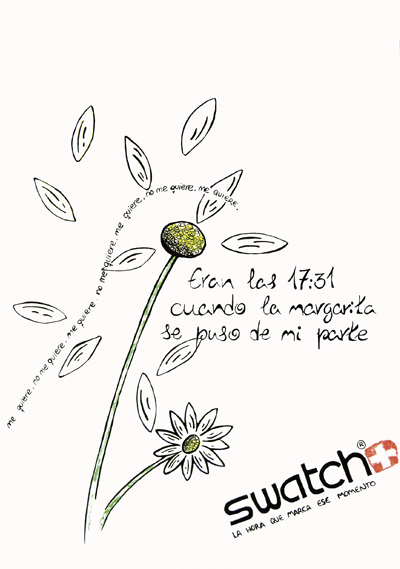 me quiere, no me quiere, me quiere, no me quiere, me quiere, no me quiere, me quiere.
Eran las 17:31
cuando la margarita
se puso de mi parte
swatch®
LA HORA QUE MARCA ESE MOMENTO